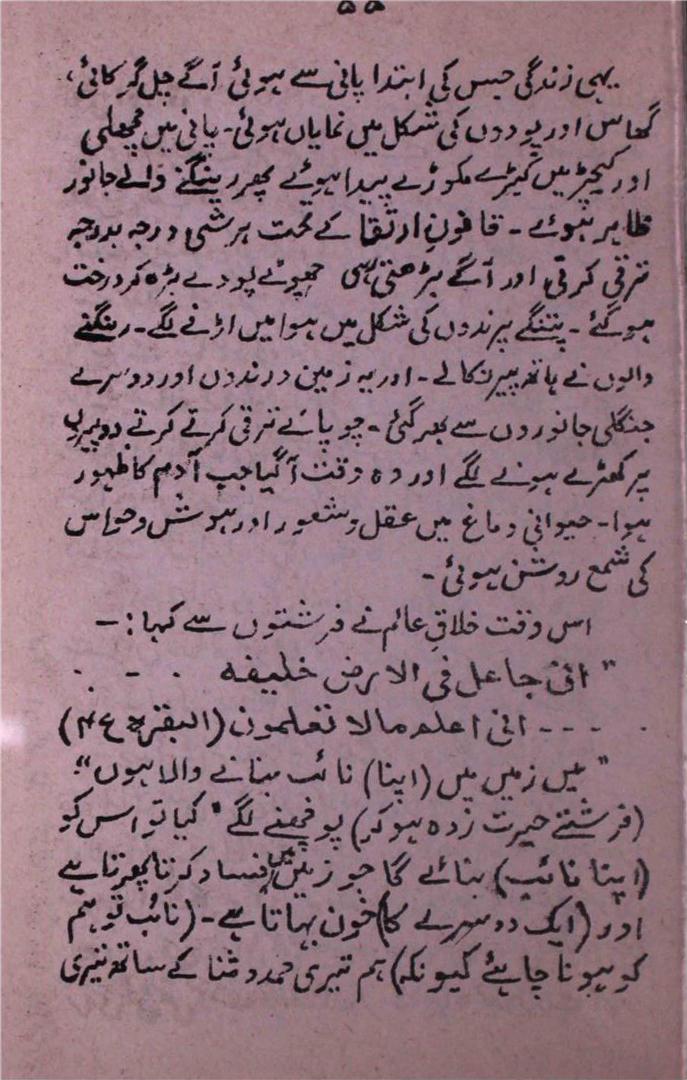 ۵۵
یہی زندگی جس کی ابتدا پانی سے ہوئی آگے چل کر کائی،
گھاس اور پودوں کی شکل میں نمایاں ہوئی۔ پانی میں مچھلی
اور کیچڑ میں کیڑے مکوڑے پیدا ہوئے پھر رینگنے والے جانور
ظاہر ہوئے۔ قانونِ ارتقا کے تحت ہر شئی درجہ بدرجہ
ترقی کرتی اور آگے بڑھتی رہی چھوٹے پودے بڑھ کر درخت
ہو گئے۔ پتنگے پرندوں کی شکل میں ہوا میں اڑنے لگے۔ رینگنے
والوں نے ہاتھ پیر نکالے۔ اور یہ زمین درندوں اور دوسرے
جنگلی جانوروں سے بھر گئی۔ چوپائے ترقی کرتے کرتے دو پیروں
پر کھڑے ہونے لگے اور وہ وقت آ گیا جب آدم کا ظہور
ہوا۔ حیوانی دماغ میں عقل و شعور اور ہوش و حواس
کی شمع روشن ہوئی۔
اس وقت خلاقِ عالم نے فرشتوں سے کہا:۔
" انی جاعل فی الارض خلیفہ . - . .
. . - - - انی اعلم مالا تعلمون (البقرہ ع ۴)
" میں زمیں میں (اپنا) نائب بنانے والا ہوں"۔
(فرشتے حیرت زدہ ہو کر) پوچھنے لگے " کیا تو اس کو
(اپنا نائب) بنائے گا جو زمین میں فساد کرتا پھرتا ہے
اور (ایک دوسرے کا) خون بہاتا ہے۔ (نائب تو ہم
کو ہونا چاہئے کیونکہ) ہم تیری حمد و ثنا کے ساتھ تیری